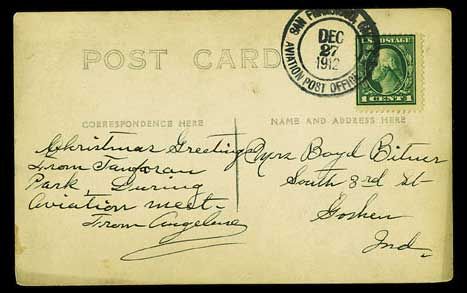 POST CARD
SAN FRANCISCO, CAL.
DEC
27
1912
AVIATION POST OFFICE
U.S. POSTAGE
1 CENT 1
CORRESPONDENCE HERE
NAME AND ADDRESS HERE
Christmas Greeting
From Tanforan
Park, During
Aviation meet-
From Angeline
Mrs Boyd Bitner
South 3rd St-
Goshen
Ind.